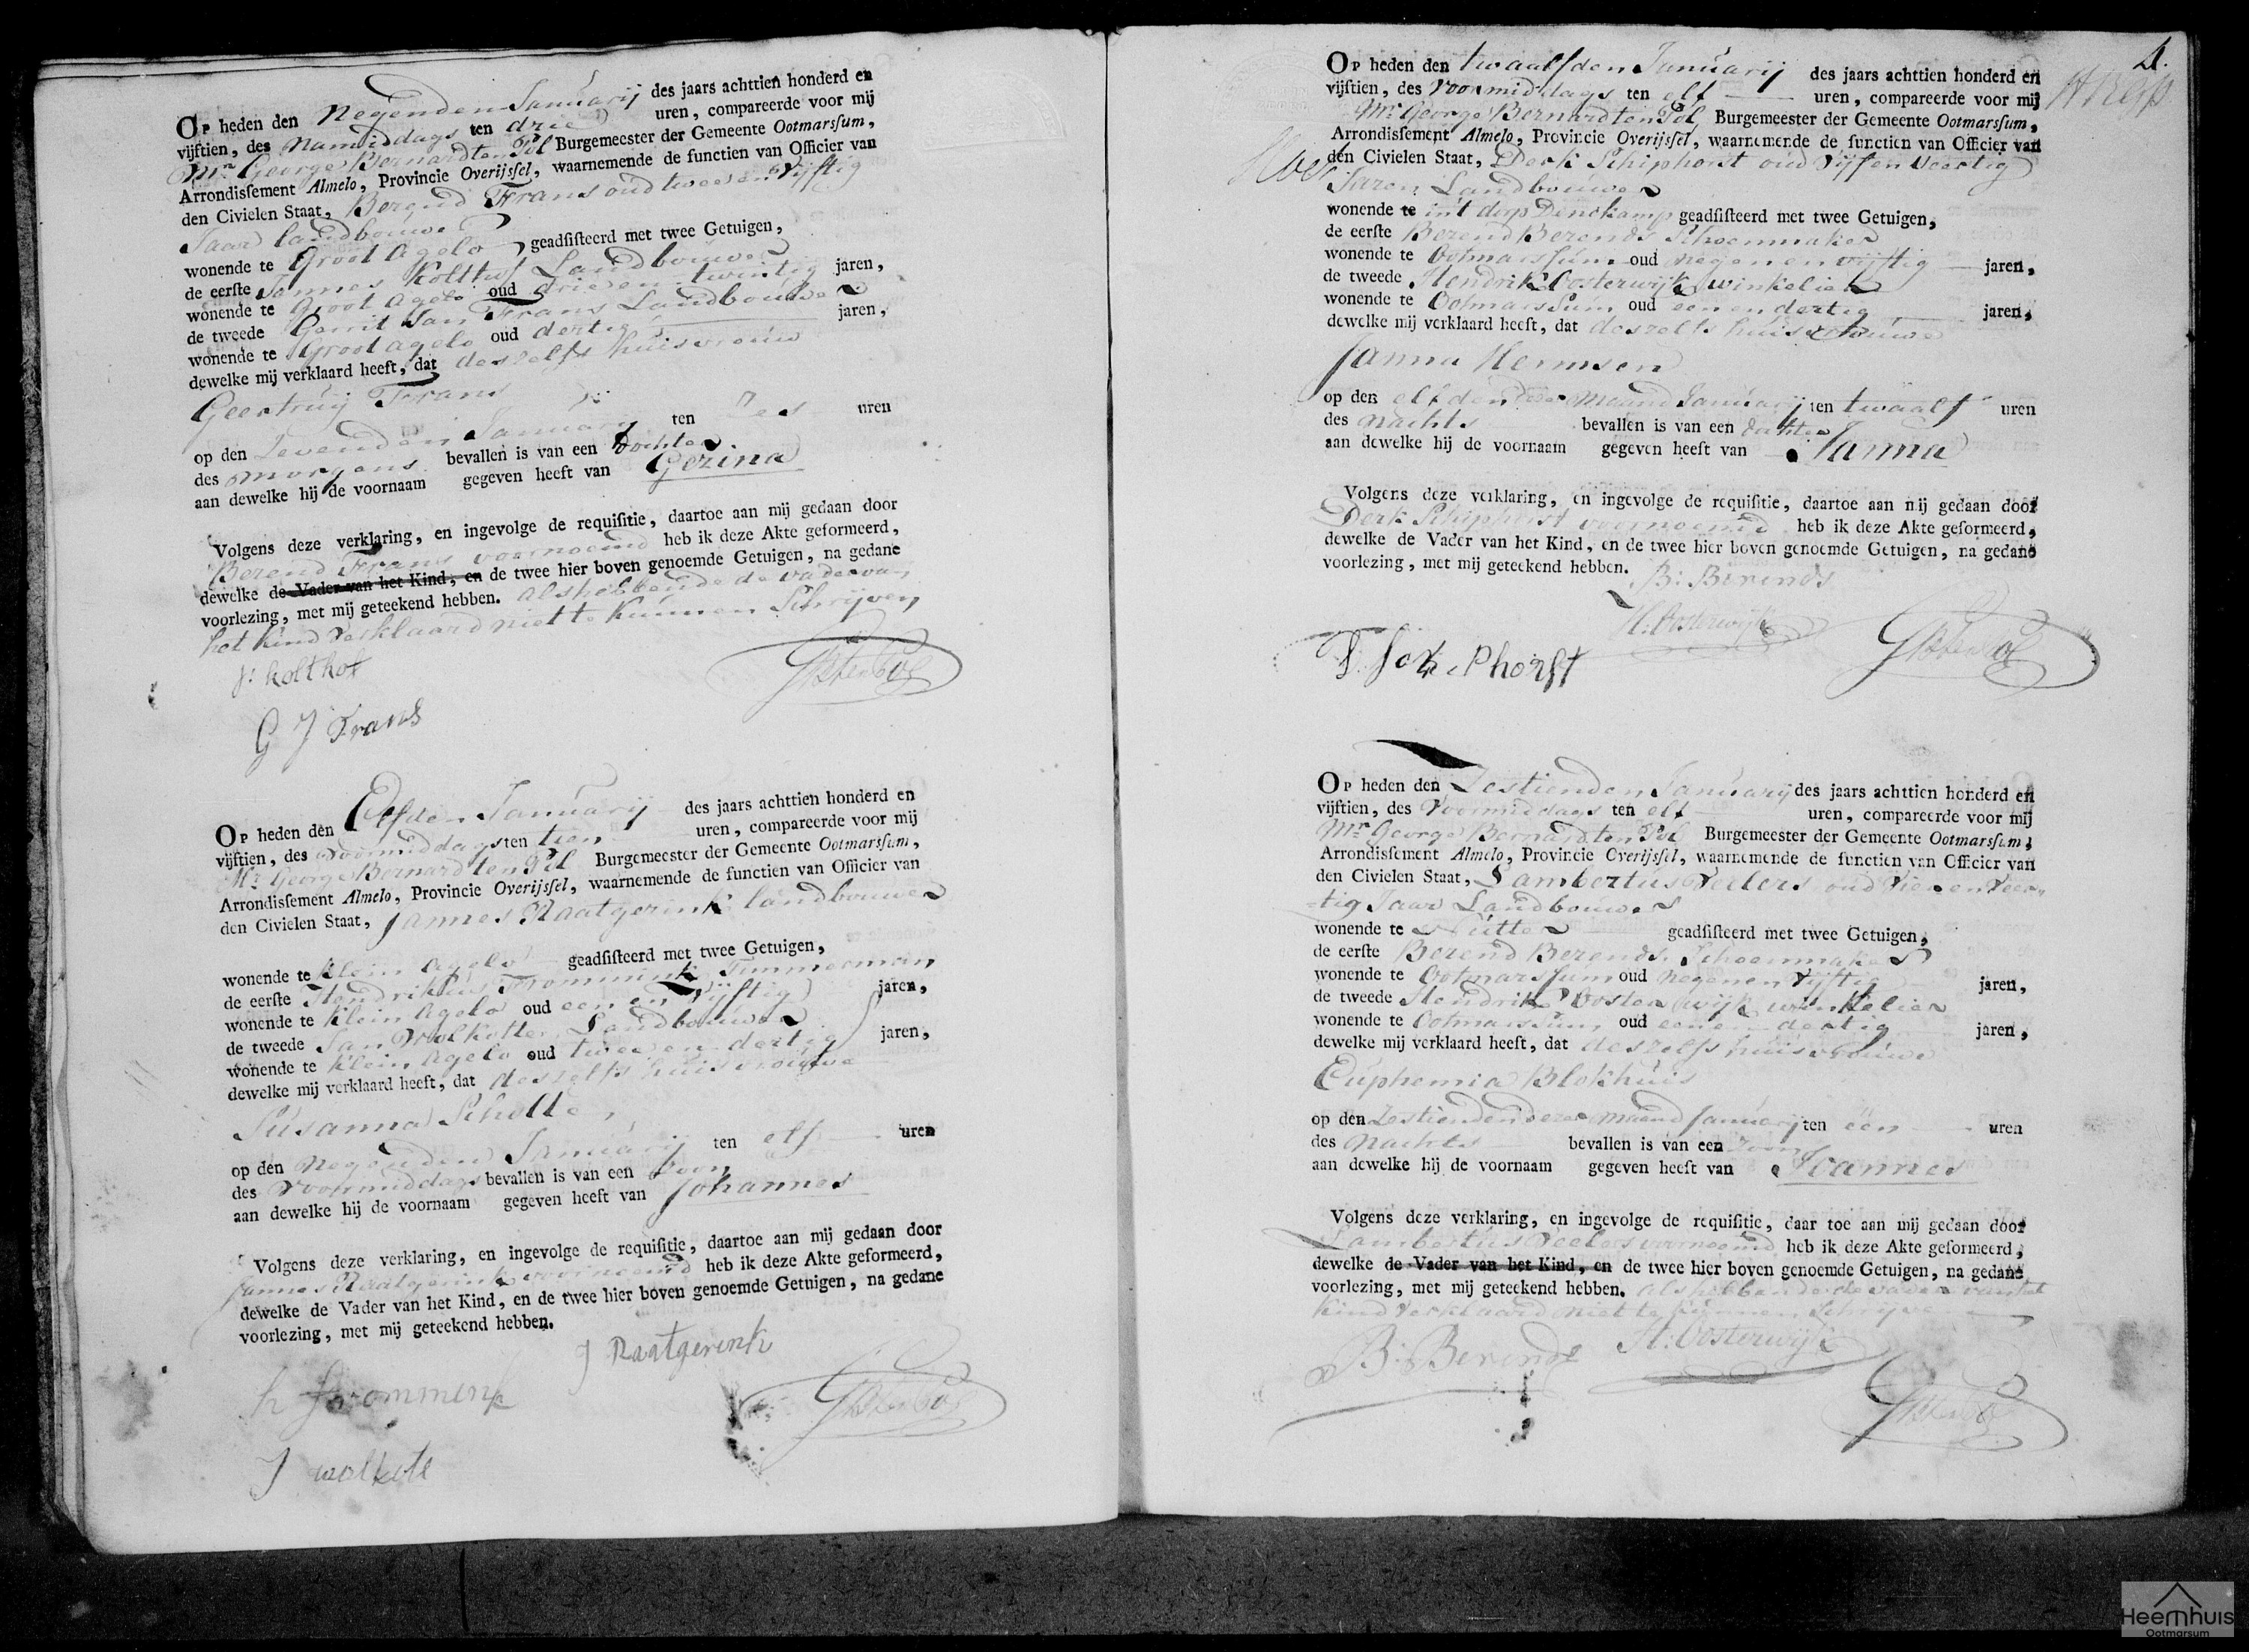 Op heden den Negenden Januarij des jaars achttien honderd en
vijftien, des Namiddags ten drie uren, compareerde voor mij
Mr. George Bernard ten Pol Burgemeester der Gemeente Ootmarssum,
Arrondissement Almelo, Provincie Overijssel, waarnemende de functien van Officier van
den Civielen Staat, Berend Frans oud twee en vijftig
Jaar landbouwer
wonende te Groot Agelo geadsisteerd met twee Getuigen,
de eerste Jannes Kolthof Landbouwer
wonende te Groot Agelo oud drie en twintig jaren,
de tweede Gerrit Jan Frans Landbouwer
wonende te Groot agelo oud dertig jaren,
dewelke mij verklaard heeft, dat deszelfs huisvrouw
Geertruij Frans
op den Zevenden Januarij ten uren
des morgens bevallen is van een Dochter
aan dewelke hij de voornaam gegeven heeft van Gezina
Volgens deze verklaring, en ingevolge de requisitie, daartoe aan mij gedaan door
Berend Frans voornoemd heb ik deze Akte geformeerd,
dewelke de Vader van het Kind, en de twee hier boven genoemde Getuigen, na gedane
voorlezing, met mij geteekend hebben. als hebbende de vader van
het kind verklaard niet te kunnen Schrijven
j: kolthof
GBtenPol
G J Frans
Op heden den Elfden Januarij des jaars achttien honderd en
vijftien, des voormiddags ten tien uren, compareerde voor mij
Mr. George Bernard ten Pol Burgemeester der Gemeente Ootmarssum,
Arrondissement Almelo, Provincie Overijssel, waarnemende de functien van Officier van
den Civielen Staat, Jannes Raatgerink landbouwer
wonende te klein Agelo geadsisteerd met twee Getuigen,
de eerste Hendrikus Frommink Timmerman
wonende te klein Agelo oud een en vijftig jaren,
de tweede Jan Wolkotte Landbouwer
wonende te klein Agelo oud twee en dertig jaren,
dewelke mij verklaard heeft, dat deszelfs huisvrouwe
Susanna Scholte
op den negenden Januarij ten elf uren
des voormiddags bevallen is van een Zoon
aan dewelke hij de voornaam gegeven heeft van Johannes
Volgens deze verklaring, en ingevolge de requisitie, daartoe aan mij gedaan door
Jannes Raatgerink voornoemd heb ik deze Akte geformeerd,
dewelke de Vader van het Kind, en de twee hier boven genoemde Getuigen, na gedane
voorlezing, met mij geteekend hebben.
J Raatgerink
h frommink
GBtenPol
J wolkote
4.
Op heden den twaalfden Januarij des jaars achttien honderd en
vijftien, des Voormiddags ten elf uren, compareerde voor mij
Mr. George Bernard ten Pol Burgemeester der Gemeente Ootmarssum,
Arrondissement Almelo, Provincie Overijssel, waarnemende de functien van Officier van
den Civielen Staat, Derk Schiphorst oud Vijf en Veertig
Jaren Landbouwer
wonende te int dorp Denekamp geadsisteerd met twee Getuigen,
de eerste Berend Berends Schoenmaker
wonende te Ootmarssum oud negen en vijftig jaren,
de tweede Hendrik Oosterwijk winkelier
wonende te Ootmarssum oud een en dertig jaren,
dewelke mij verklaard heeft, dat deszelfs huisvrouwe
Janna Hermsen
op den elfden dezer maand Januarij ten twaalf uren
des nachts bevallen is van een dochter
aan dewelke hij de voornaam gegeven heeft van Janna
Volgens deze verklaring, en ingevolge de requisitie, daartoe aan mij gedaan door
Derk Schiphorst voornoemd heb ik deze Akte geformeerd,
dewelke de Vader van het Kind, en de twee hier boven genoemde Getuigen, na gedane
voorlezing, met mij geteekend hebben.
B: Berends
H: Oosterwijk
GBtenPol
Op heden den Zestienden Januarij des jaars achttien honderd en
vijftien, des Voormiddags ten elf uren, compareerde voor mij
Mr. George Bernard ten Pol Burgemeester der Gemeente Ootmarssum,
Arrondissement Almelo, Provincie Overijssel, waarnemende de functien van Officier van
den Civielen Staat, Lambertus Veelers oud Vier en Veer-
tig Jaar Landbouwer
wonende te Nutter geadsisteerd met twee Getuigen,
de eerste Berend Berends Schoenmaker
wonende te Ootmarssum oud negen en Vijftig jaren,
de tweede Hendrik Oosterwijk winkelier
wonende te Ootmarssum oud een en dertig jaren,
dewelke mij verklaard heeft, dat deszelfs huisvrouwe
Euphemia Blokhuis
op den Zestienden dezer maand Januarij ten een uren
des Nachts bevallen is van een zoon
aan dewelke hij de voornaam gegeven heeft van Joannes
Volgens deze verklaring, en ingevolge de requisitie, daar toe aan mij gedaan door
Lambertus Veelers voornoemd heb ik deze Akte geformeerd,
dewelke de Vader van het Kind, en de twee hier boven genoemde Getuigen, na gedane
voorlezing, met mij geteekend hebben. als hebbende de vader van het
kind verklaard niet te kunnen Schrijve
B: Berends H: Oosterwijk
GBtenPol
Heemhuis
Ootmarsum